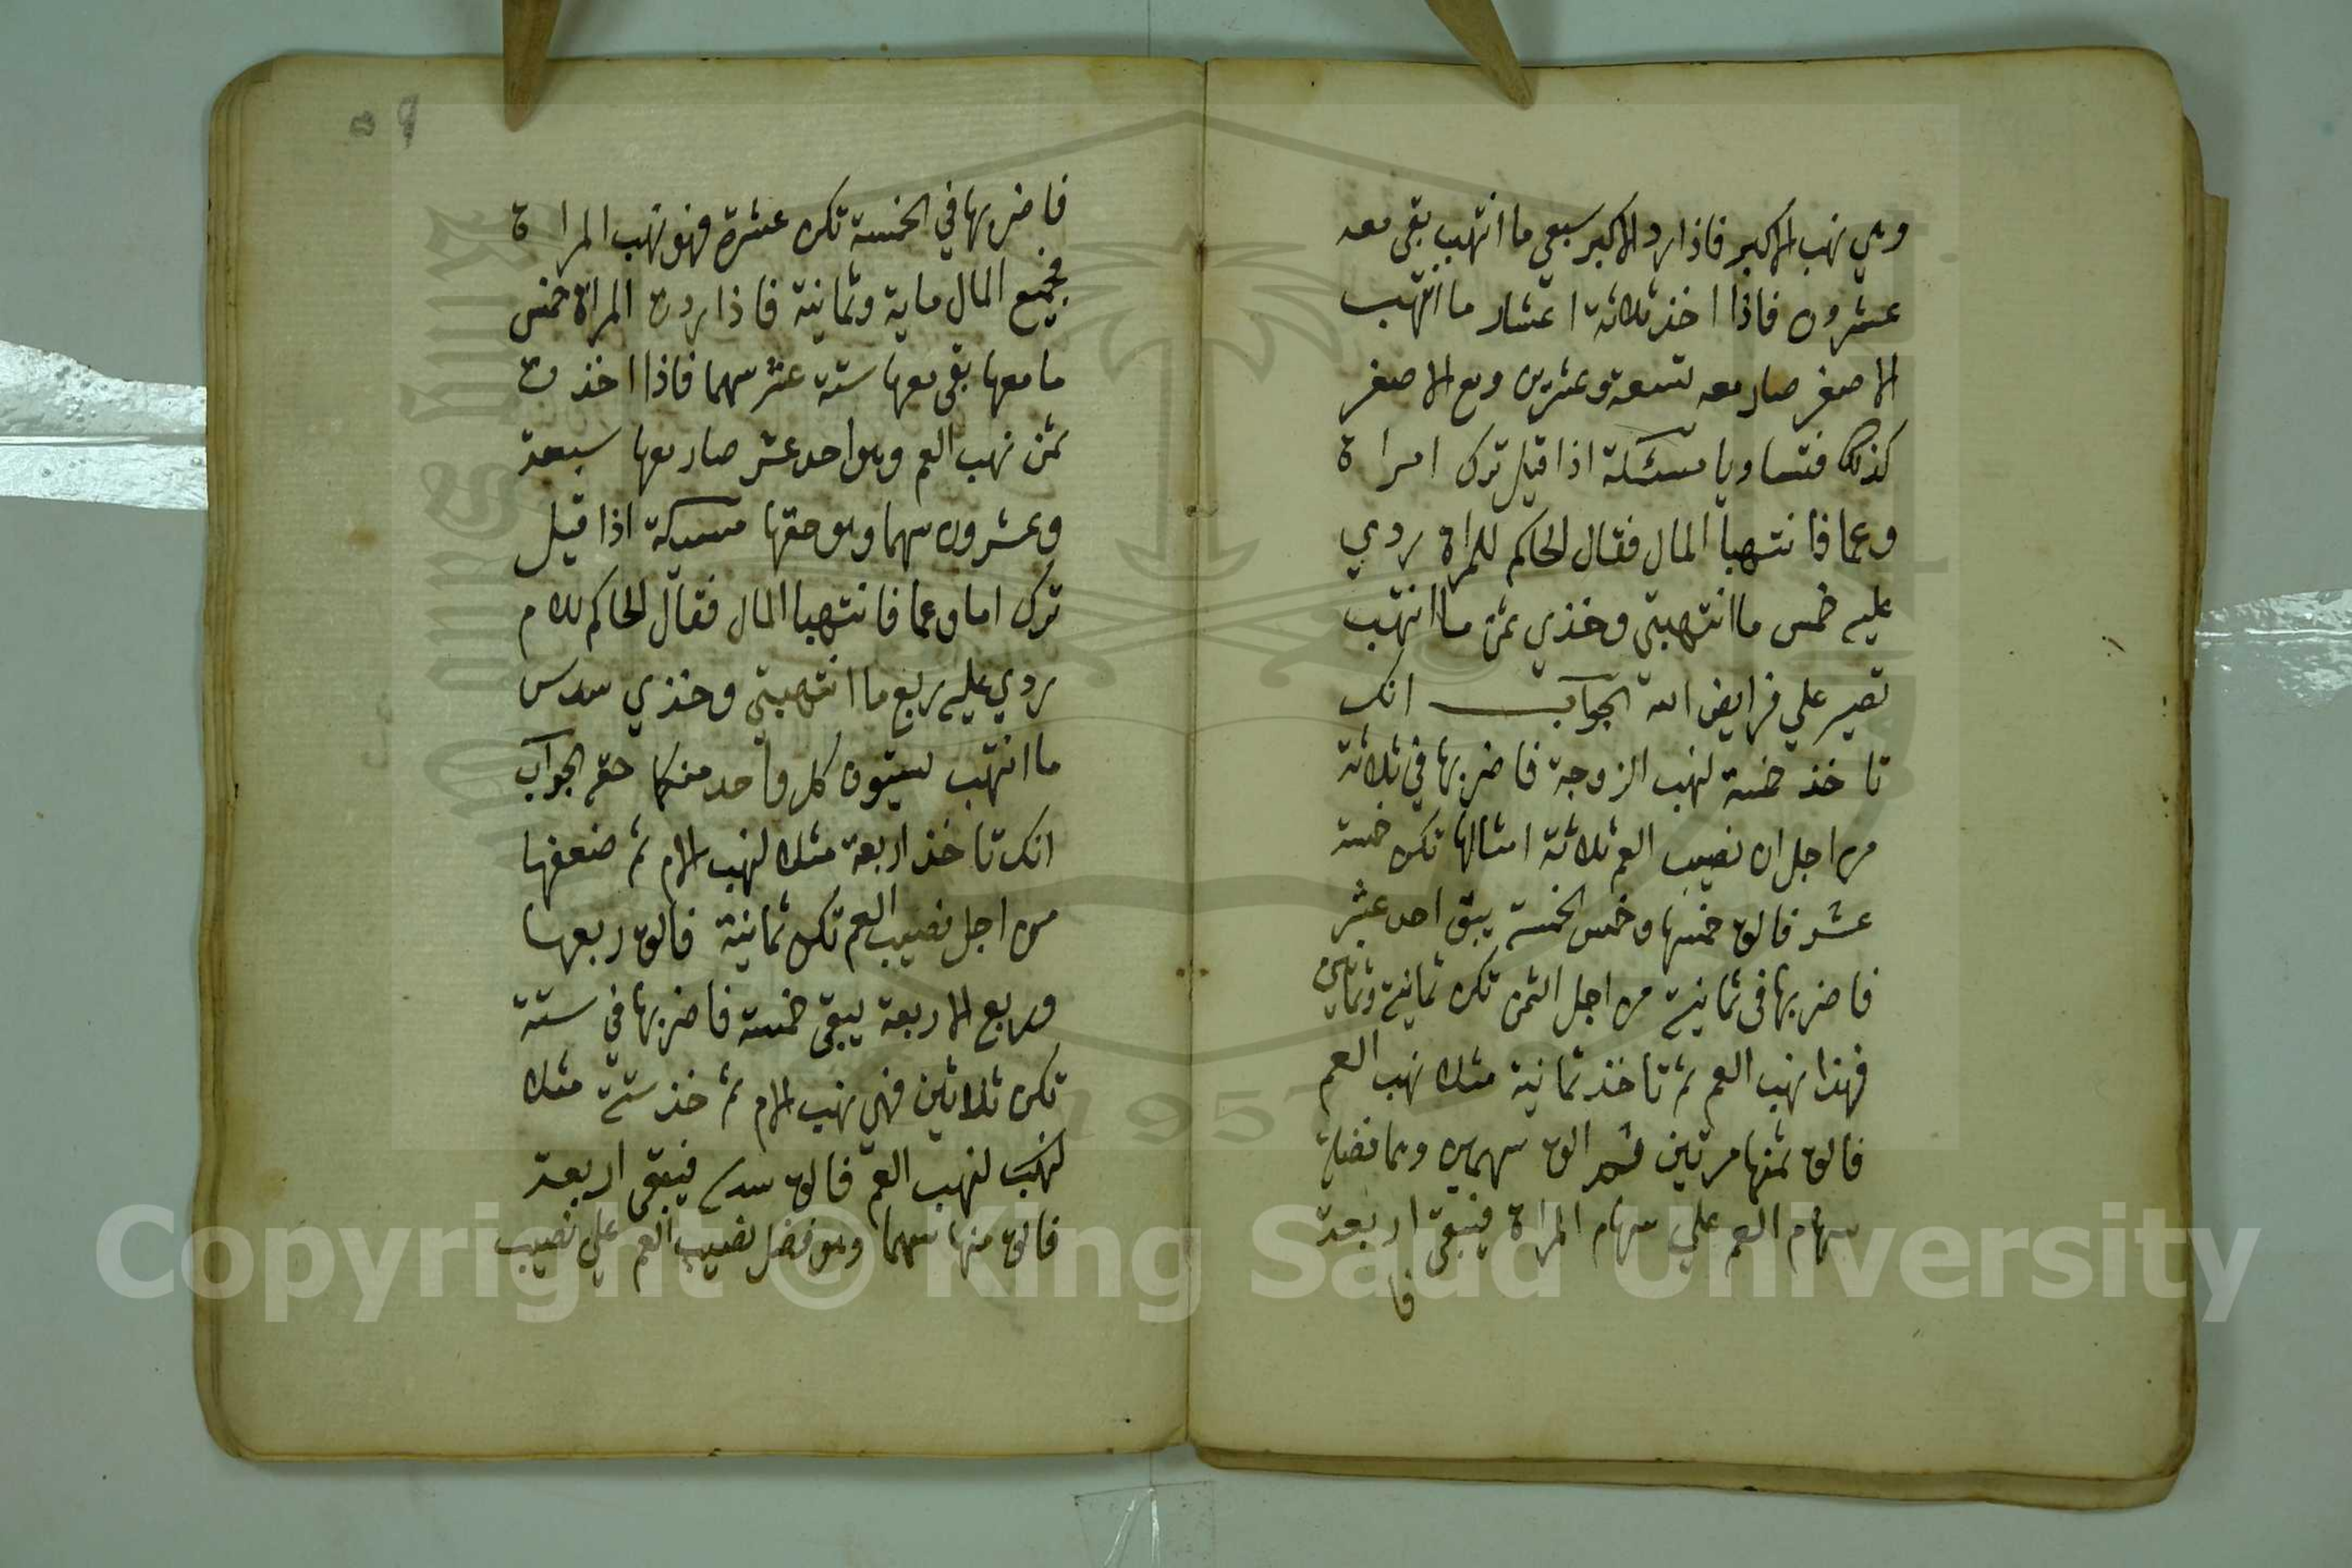 وهي نهب الاكبر فاذا رد الاكبر سبعي ما انتهب بقي معه
عشرون فاذا اخذ ثلاثة اعشار ما انتهب
الاصغر صار معه تسعة وعشرين ومع الاصغر
كذلك فتساويا مسئلة اذا قيل ترك امراة
وعما فانتهبا المال فقال الحاكم للمراة ردي
عليه خمس ما انتهبتي وخذي ثمن ما انتهب
تصير علي فرايض الله الجواب انك
تاخذ خمسة لنهب الزوجة فاضربها في ثلاثة
من اجل ان نصيب العم ثلاثة امثالها تكن خمسة
عشر فالق خمسها وخمس الخمسة يبق احد عشر
فاضربها في ثمانية من اجل الثمن تكن ثمانية وثمانين
فهذا نهب العم ثم تاخذ ثمانية مثلا نهب العم
فالق ثمنها مرتين ثم الق سهمين وهما فضل
سهام العم علي سهام المراة فيبقي اربعة
فا
٥٩
فاضربها في الخمسة تكن عشرة فهو نهب المراة
فجميع المال ماية وثمانية فاذا ردت المراة خمس
ما معها بقي معها ستة عشر سهما فاذا اخذت
ثمن نهب العم وهو احد عشر صار معها سبعة
وعشرون سهما وهو حقها مسئلة اذا قيل
ترك اما وعما فانتهبا المال فقال الحاكم للام
ردي عليه ربع ما انتهبتي وخذي سدس
ما انتهب ليستوف كل واحد منكما حقه الجواب
انك تاخذ اربعة مثلا لنهب الام ثم ضعفها
من اجل نصيب العم تكن ثمانية فالق ربعها
وربع الاربعة يبقي خمسة فاضربها في ستة
تكن ثلاثين فهي نهب الام ثم خذ ستة مثلا
لنهب العم فالق سدسه فيبقي اربعة
فالق منها سهما وهو فضل نصيب العم علي نصيب
Copyright © King Saud University
1957